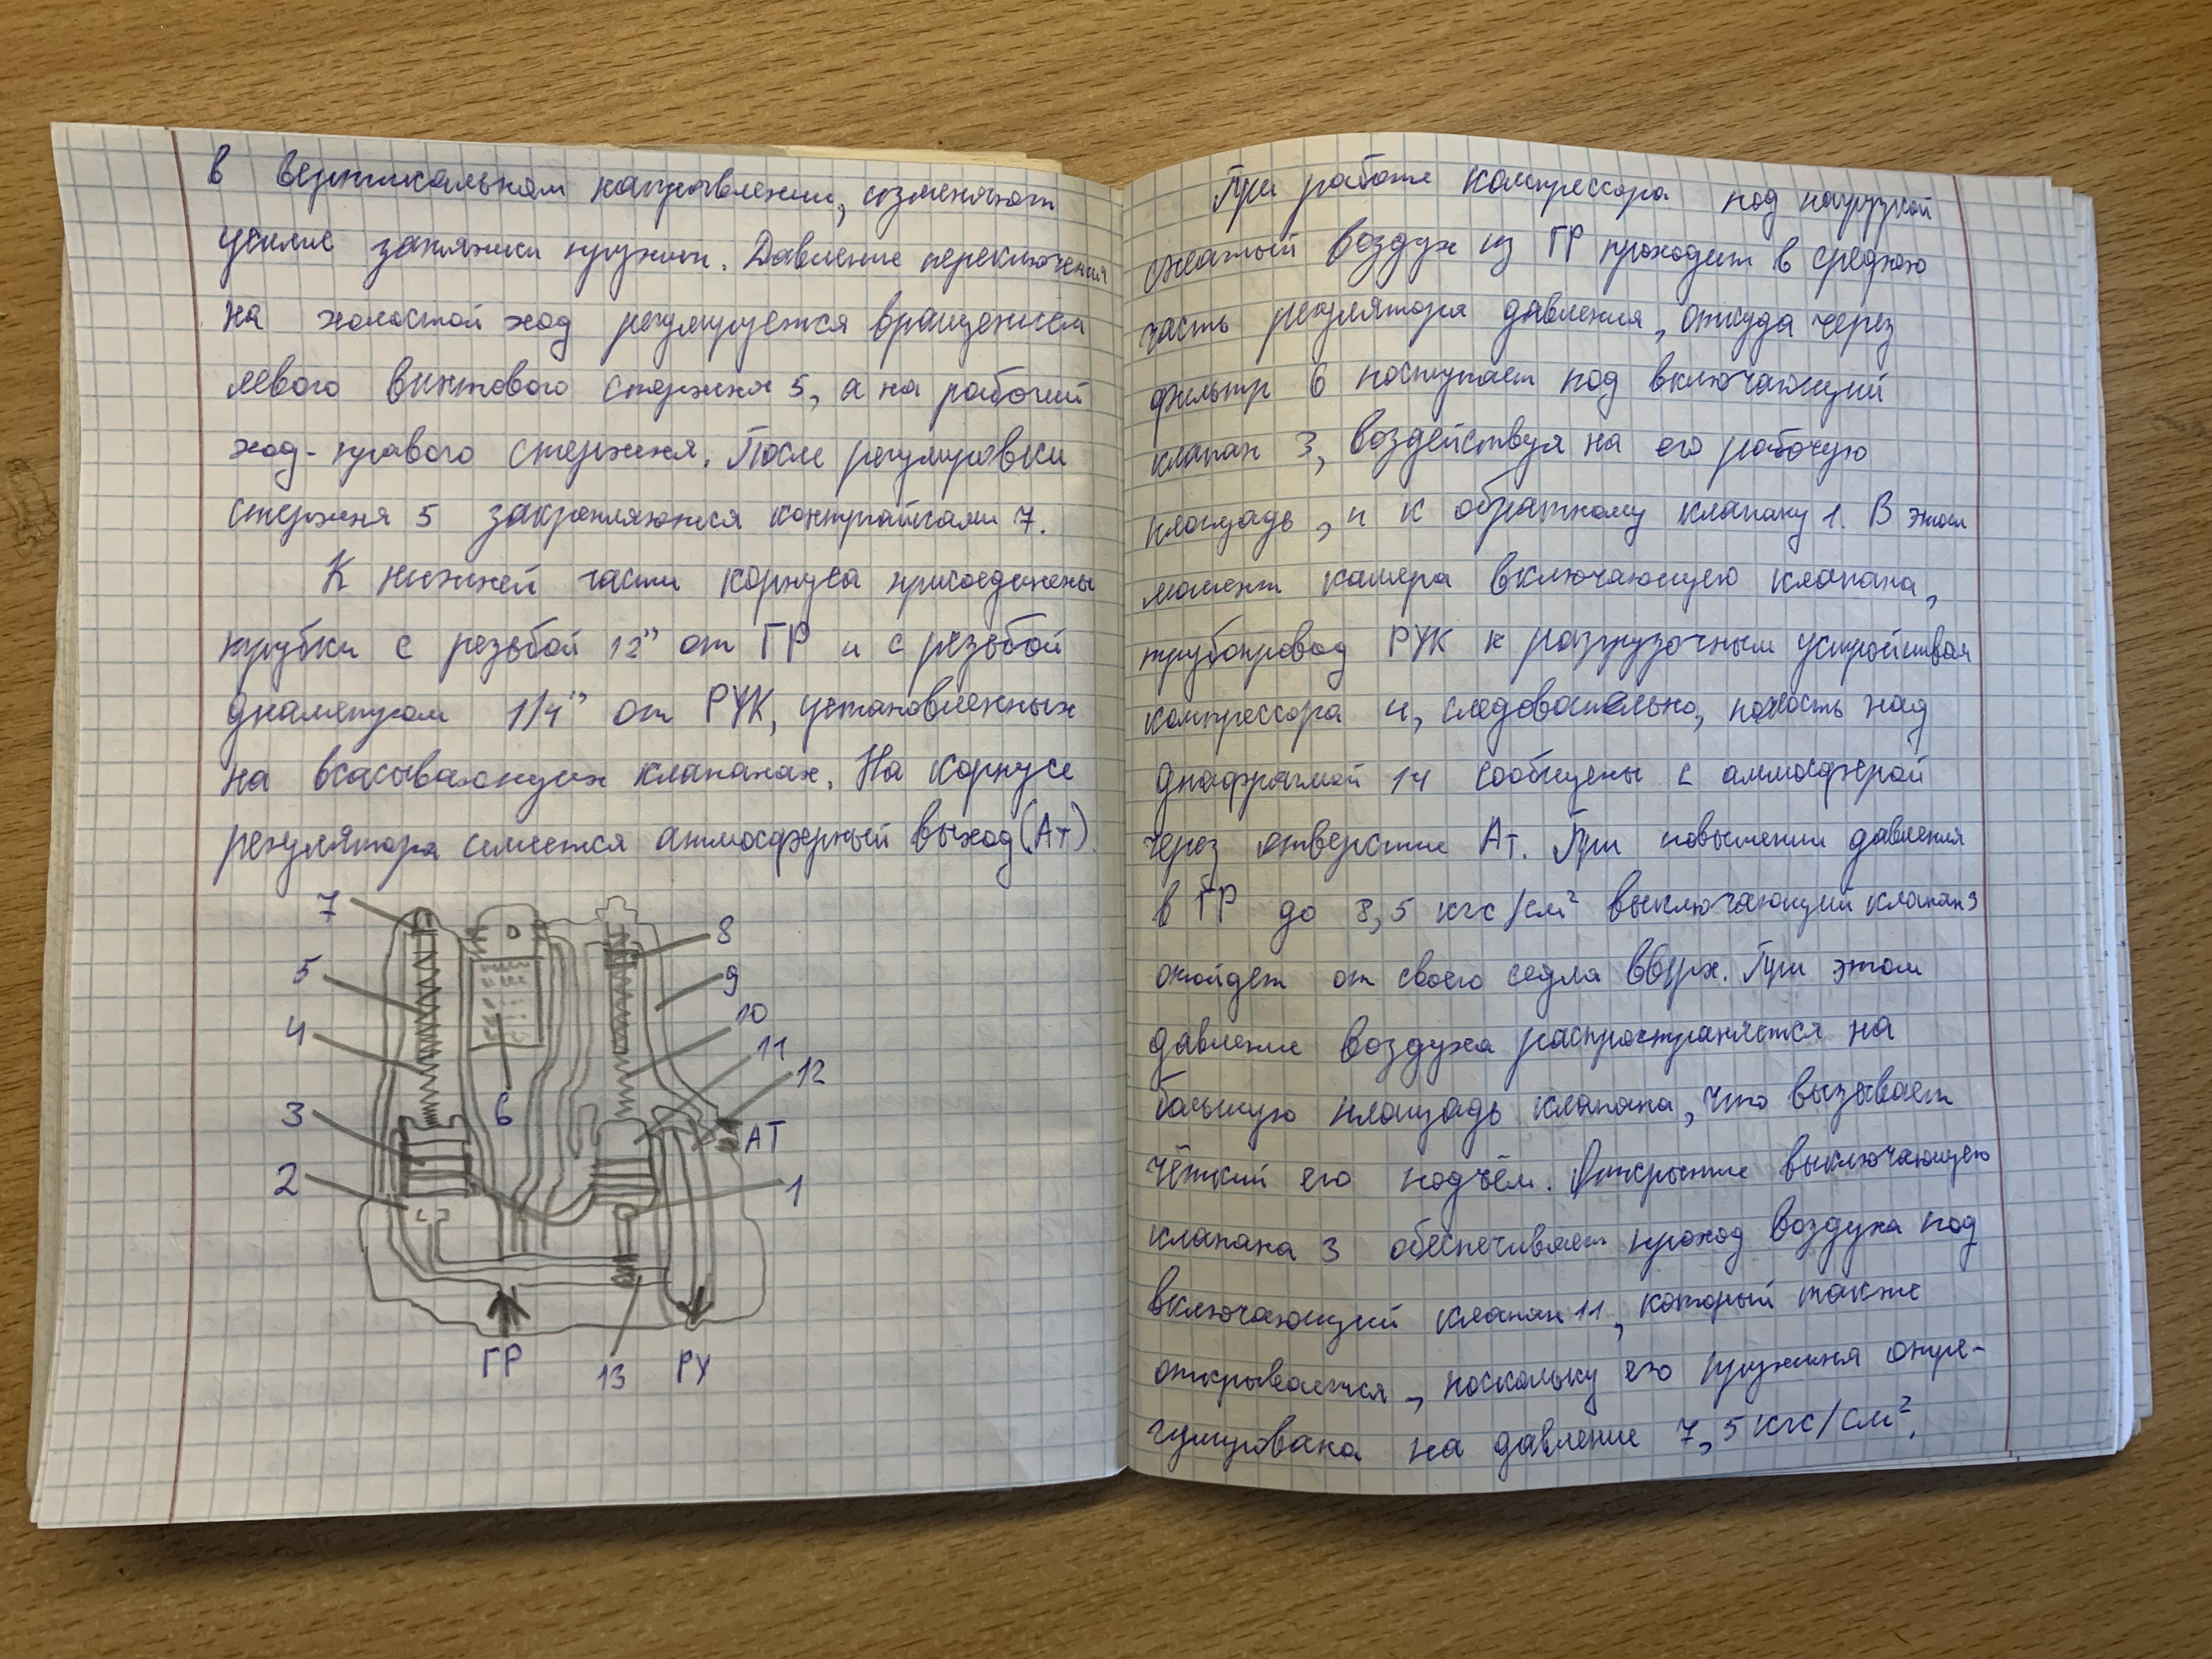 в вертикальном направлении, изменяют
усилие затяжки пружин. Давление переключения
на холостой ход регулируется вращением
левого винтового стержня 5, а на рабочий
ход - правого стержня. После регулировки
стержня 5 закрепляются контргайками 7.
К нижней части корпуса присоединены
трубки с резьбой 12" от ГР и с резьбой
диаметром 1/4" от РУК, установленных
на всасывающих клапанах. На корпусе
регулятора имеется атмосферный выход (Ат).
7
8
5
9
4
10
11
12
3
6
АТ
2
1
ГР
13
РУ
При работе компрессора под нагрузкой
сжатый воздух из ГР проходит в среднюю
часть регулятора давления, откуда через
фильтр 6 поступает под включающий
клапан 3, воздействуя на его рабочую
площадь, и к обратному клапану 1. В этом
момент камера включающего клапана,
трубопровод РУК к разгрузочным устройствам
компрессора и, следовательно, полость над
диафрагмой 14 сообщены с атмосферой
через отверстие Ат. При повышении давления
в ГР до 8,5 кгс/см² выключающий клапан 3
отойдет от своего седла вверх. При этом
давление воздуха распространяется на
большую площадь клапана, что вызывает
чёткий его подъём. Открытие выключающего
клапана 3 обеспечивает проход воздуха под
включающий клапан 11, который также
открывается, поскольку его пружина отре-
гулирована на давление 7,5 кгс/см².